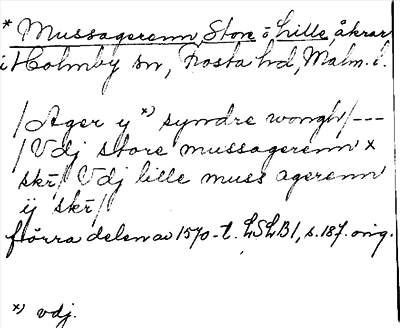 * Mussagerenn, Store o lille, åkrar
i Holmby sn, Frosta hd, Malm. l.
/Ager ij *) syndre wongh/---
/Vdj store mussagerenn x
skr/ Vdj lille muss agerenn
ij skr/
förra delen av 1570-t. LSLB1, s. 187. orig.
*) vdj.